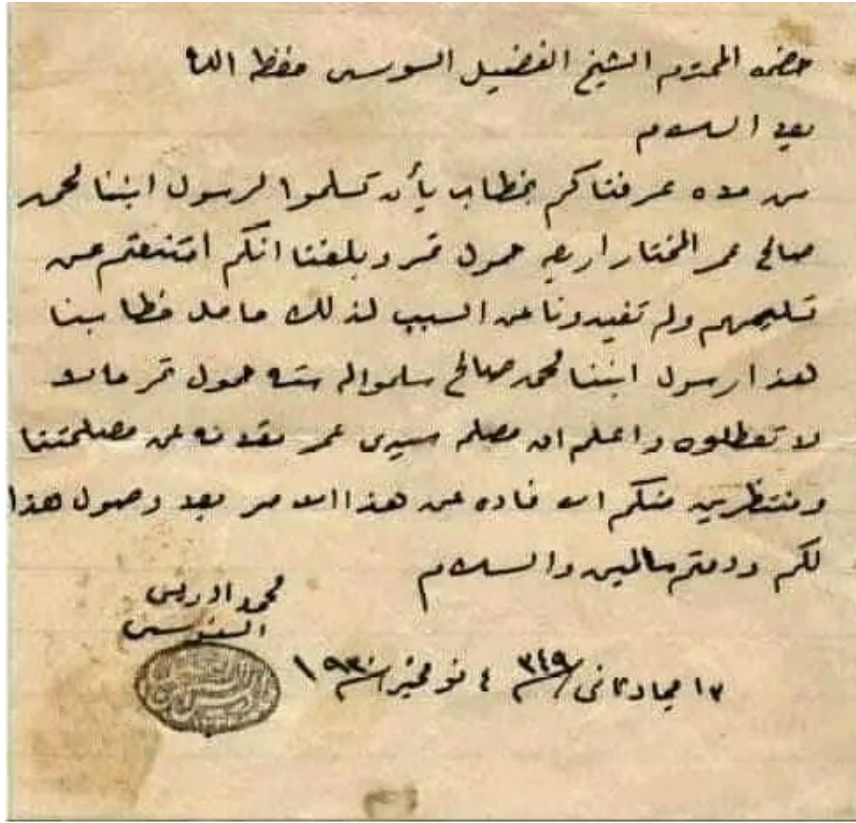 حضرة المحترم الشيخ الفضيل السوسى حفظه الله
بعد السلام
من مده عرفناكم بخطاب بأن تسلموا لرسول ابننا محمد
صالح عمر المختار اربعه حمول تمر وبلغنا انكم امتنعتم عن
تسليمهم ولم تفيدونا عن السبب لذلك حامل خطابنا
هذا رسول ابننا محمد صالح سلموا له سته حمول تمر حالا
لا تعطلوه واعلم ان مصلحه سيدى عمر مقدمه عن مصلحتنا
ومنتظرين منكم الافاده عن هذا الامر بعد وصول هذا
لكم ودمتم سالمين والسلام
محمد ادريس
السنوسى
١٣ جماد ثانى ٣٤٩ ٤ نوفمبر ١٩٣٠